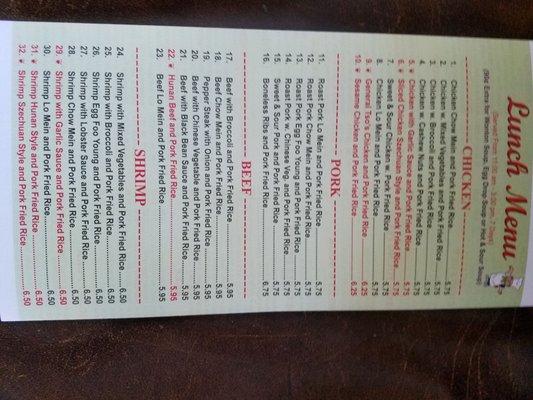 Lunch Menu
(Served 11:00 am - 3:00 pm, 7 Days)
(90¢ Extra for Wonton Soup, Egg Drop Soup or Hot & Sour Soup)
CHICKEN
1. Chicken Chow Mein and Pork Fried Rice 5.75
2. Chicken w. Mixed Vegetables and Pork Fried Rice 5.75
3. Chicken w. Broccoli and Pork Fried Rice 5.75
4. Chicken w. and Pork Fried Rice 5.75
5. Chicken with Garlic Sauce and Pork Fried Rice 5.75
6. Sliced Chicken Szechuan Style and Pork Fried Rice 5.75
7. Sweet & Sour Chicken w. Pork Fried Rice 5.75
8. Chicken Lo Mein and Pork Fried Rice 5.75
9. General Tso's Chicken and Pork Fried Rice 6.25
10. Sesame Chicken and Pork Fried Rice 6.25
PORK
11. Roast Pork Lo Mein and Pork Fried Rice 5.75
12. Roast Pork Chow Mein and Pork Fried Rice 5.75
13. Roast Pork Egg Foo Young and Pork Fried Rice 5.75
14. Roast Pork w. Chinese Veg. and Pork Fried Rice 5.75
15. Sweet & Sour Pork and Pork Fried Rice 5.75
16. Boneless Ribs and Pork Fried Rice 6.75
BEEF
17. Beef with Broccoli and Pork Fried Rice 5.95
18. Beef Chow Mein and Pork Fried Rice 5.95
19. Pepper Steak with Onion and Pork Fried Rice 5.95
20. Beef with Chinese Vegetable and Pork Fried Rice 5.95
21. Beef with Black Bean Sauce and Pork Fried Rice 5.95
22. Hunan Beef and Pork Fried Rice 5.95
23. Beef Lo Mein and Pork Fried Rice 5.95
SHRIMP
24. Shrimp with Mixed Vegetables and Pork Fried Rice 6.50
25. Shrimp with Broccoli and Pork Fried Rice 6.50
26. Shrimp Egg Foo Young and Pork Fried Rice 6.50
27. Shrimp with Lobster Sauce and Pork Fried Rice 6.50
28. Shrimp Chow Mein and Pork Fried Rice 6.50
29. Shrimp with Garlic Sauce and Pork Fried Rice 6.50
30. Shrimp Lo Mein and Pork Fried Rice 6.50
31. Shrimp Hunan Style and Pork Fried Rice 6.50
32. Shrimp Szechuan Style and Pork Fried Rice 6.50